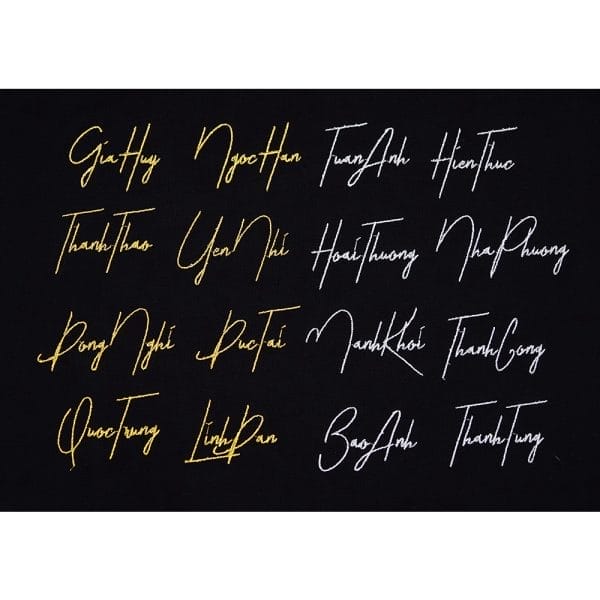 GiaHuy NgocHan TuanAnh HienThuc
ThanhThao YenNhi HoaiThuong NhaPhuong
DongNghi DucTai ManhKhoi ThanhCong
QuocTrung LinhDan BaoAnh ThanhTung